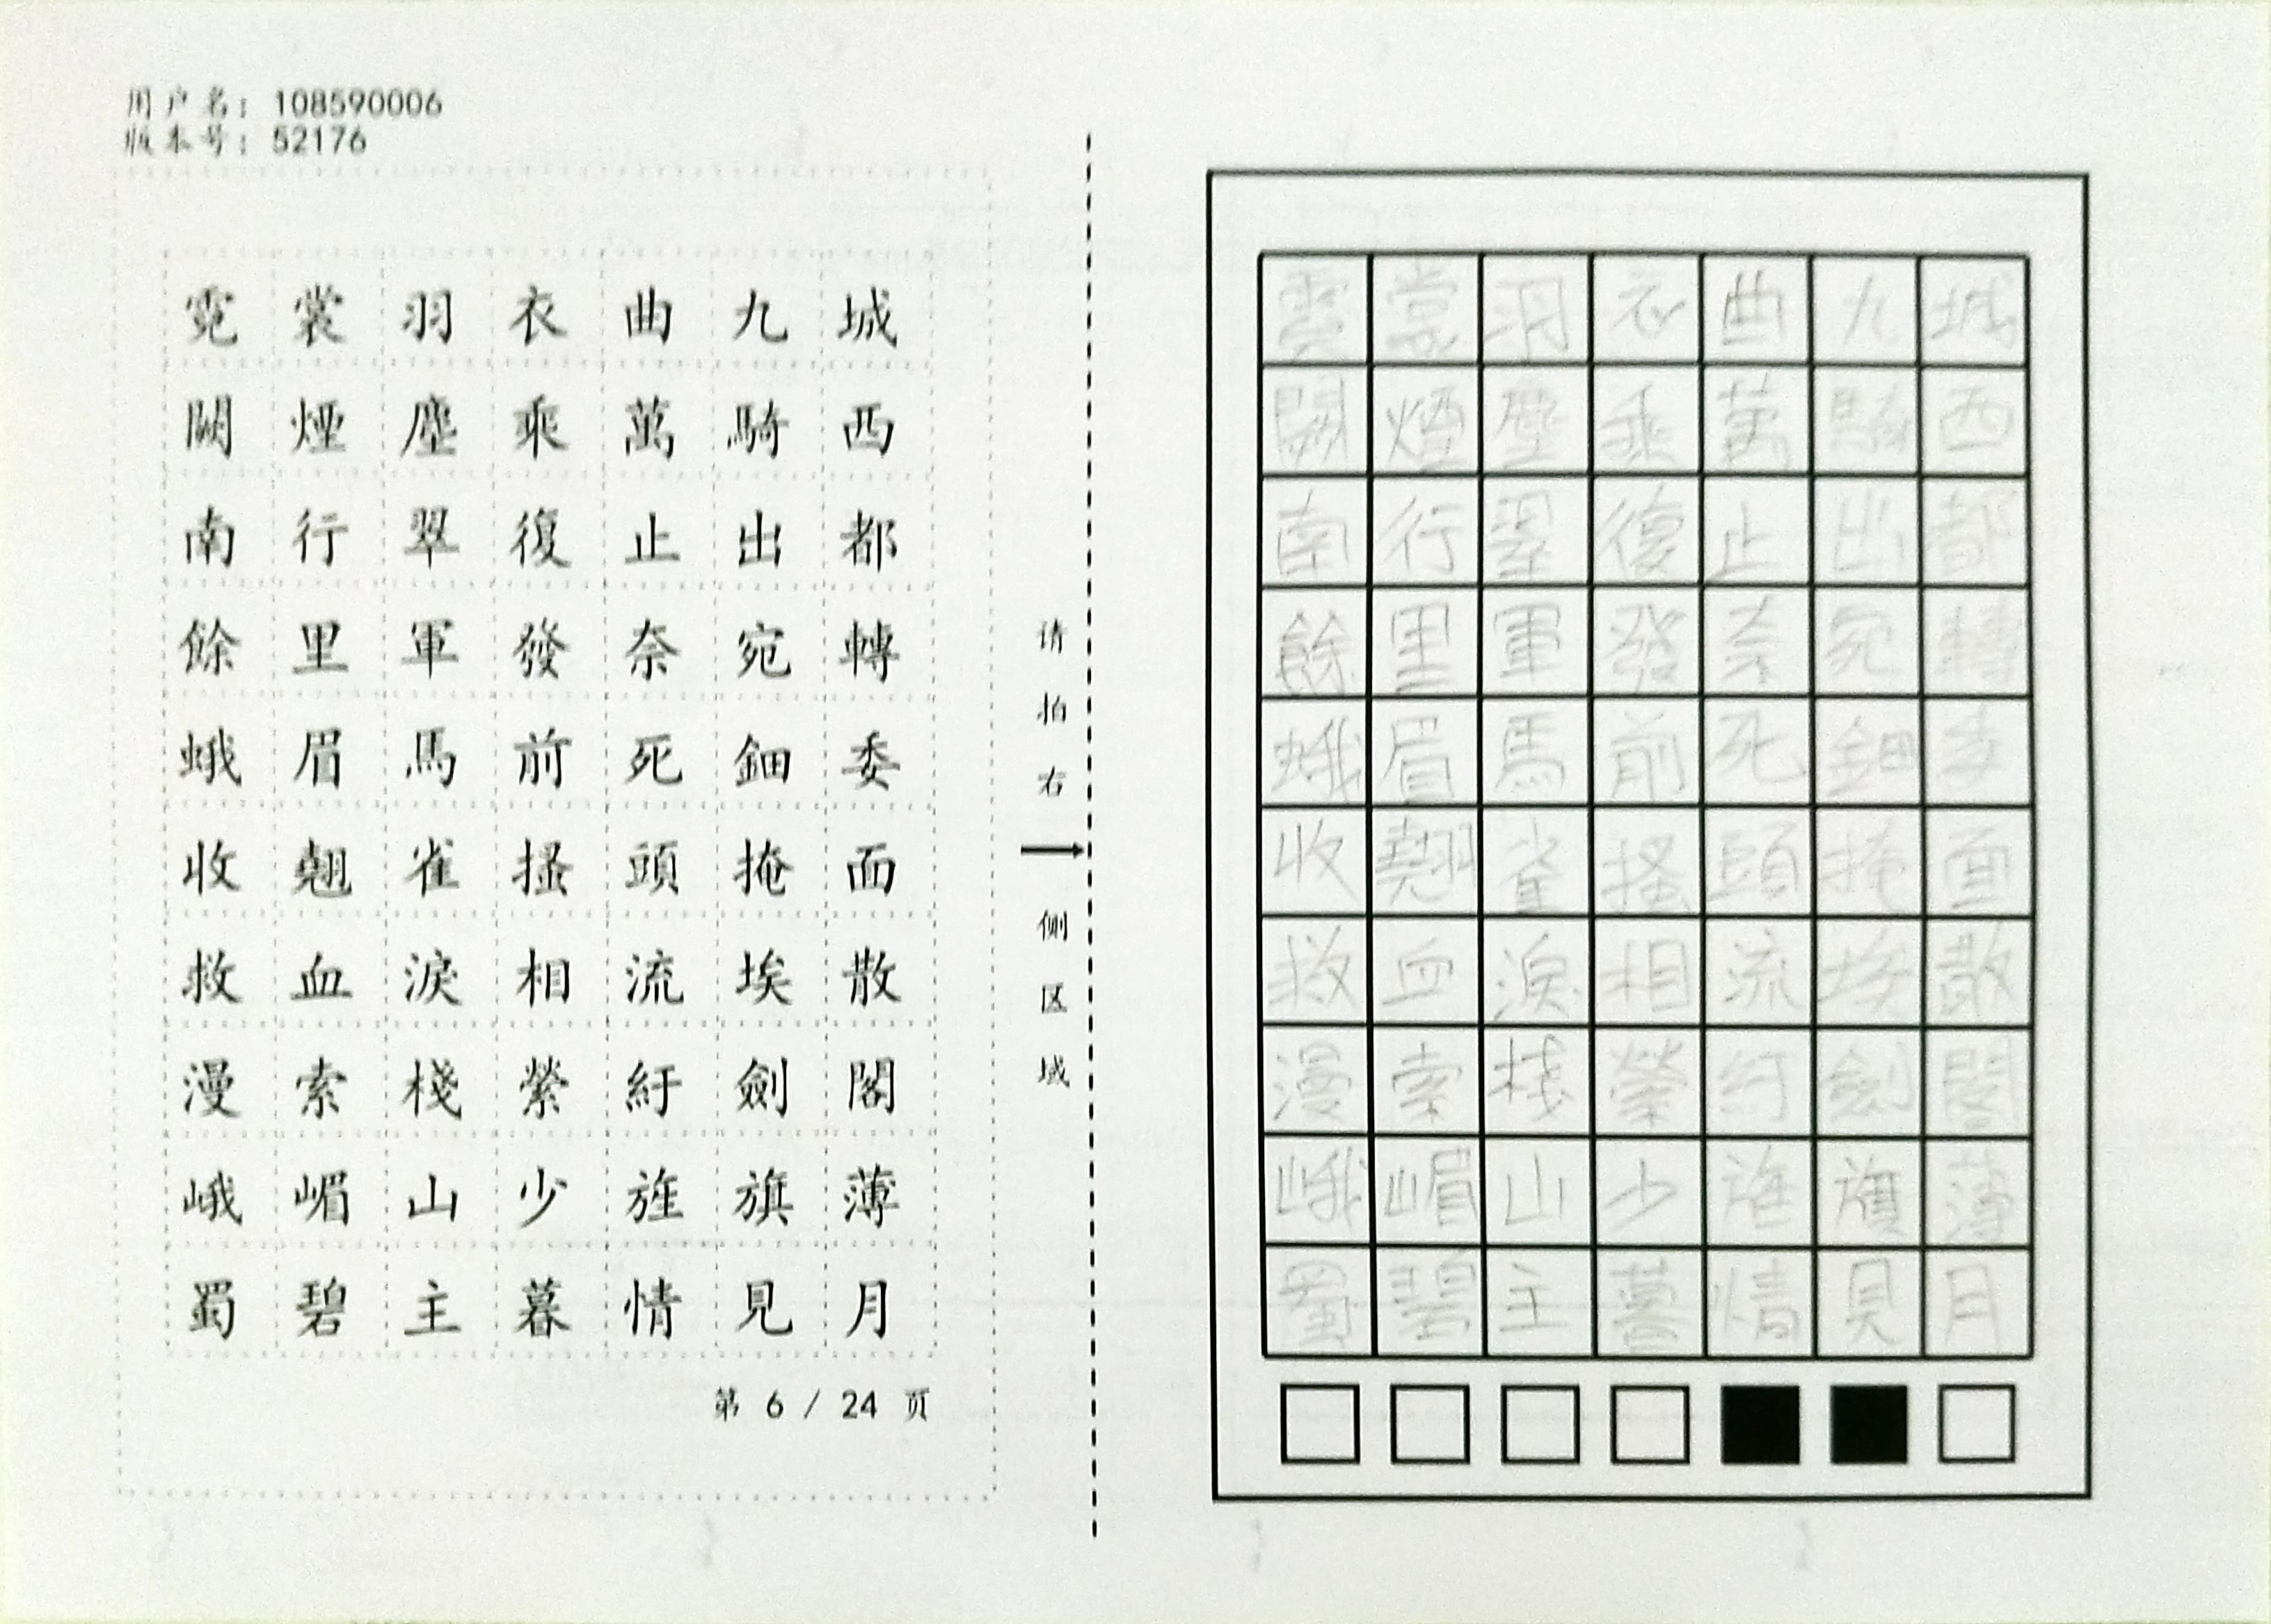 用户名: 108590006
版本号: 52176
霓裳羽衣曲九城
闕煙塵乘萬騎西
南行翠復止出都
餘里軍發奈宛轉
蛾眉馬前死鈿委
收翹雀搔頭掩面
救血淚相流埃散
漫索棧縈紆劍閣
峨嵋山少旌旗薄
蜀碧主暮情見月
第 6 / 24 页
请拍右→侧区域
霓裳羽衣曲九城
闕煙塵乘萬騎西
南行翠復止出都
餘里軍發奈宛轉
蛾眉馬前死鈿委
收翹雀搔頭掩面
救血淚相流埃散
漫索棧縈紆劍閣
峨嵋山少旌旗薄
蜀碧主暮情見月